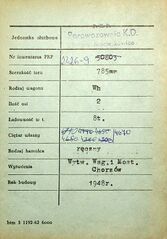 Jednostka służbowa Parowozownia K.D.
Nr inwentarza PKP 2226-9 50803
Szerokość toru 785mm
Rodzaj wagonu Wh
Ilość osi 2
Ładowność w t. 8t.
Ciężar własny 4670
Rodzaj hamulca ręczny
Wytwórnia Wytw. Wag. i Most.
Chorzów
Rok budowy 1948r.